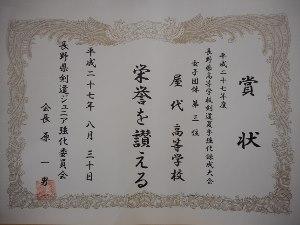 賞状
平成二十七年度
長野県高等学校剣道夏季強化錬成大会
女子団体 第三位
屋代高等学校
栄誉を讃える
平成二十七年八月三十日
長野県剣道ジュニア強化委員会
会長 原 一男